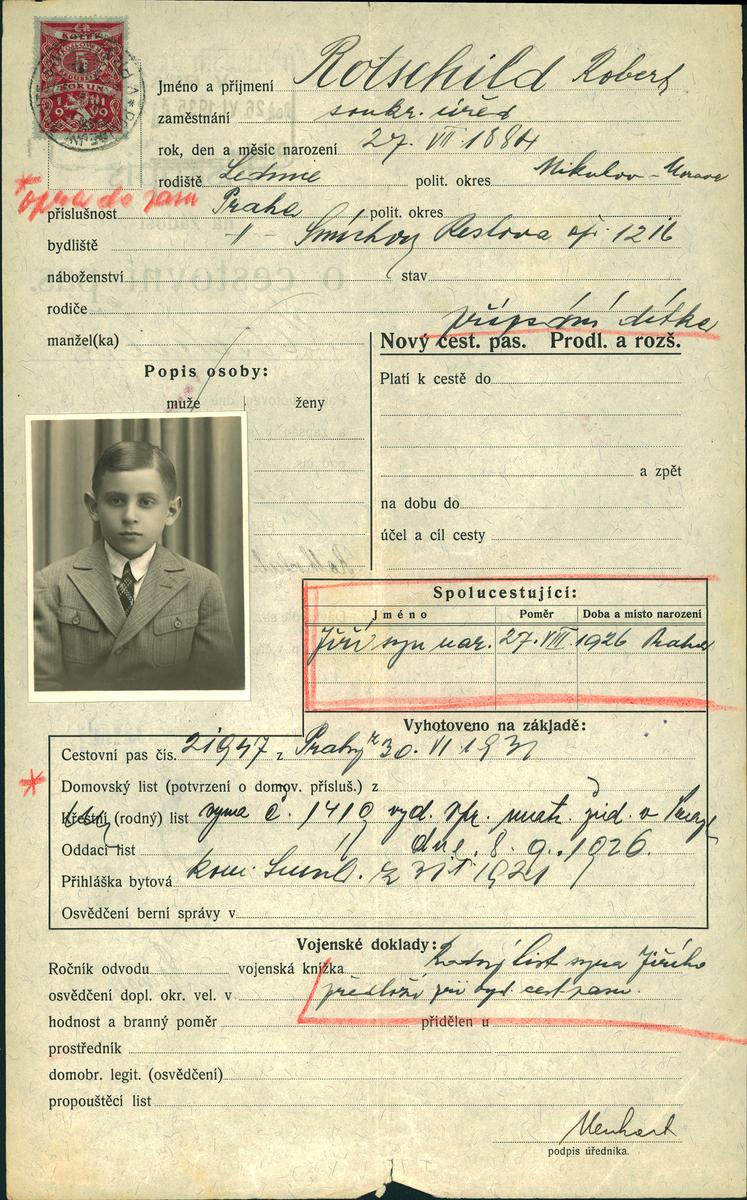 KOLEK
5
KORUN
1919
Jméno a příjmení Rotschild Robert
zaměstnání soukr. úřed
rok, den a měsíc narození 27. VII 1884
rodiště Lednice polit. okres Mikulov - Morava
příslušnost Praha polit. okres
do pasu
bydliště -"- Smíchov, čp. 1216
náboženství stav
rodiče
připsání dítka
manžel(ka)
Nový cest. pas. Prodl. a rozš.
Popis osoby:
muže ženy
Platí k cestě do
a zpět
na dobu do
účel a cíl cesty
Spolucestující:
Jméno Poměr Doba a místo narození
Jiří syn nar. 27. VIII. 1926 Praha
Vyhotoveno na základě:
Cestovní pas čís. 21947 z Prahy z 30. VI. 1931
Domovský list (potvrzení o domov. přísluš.) z
Křestní (rodný) list syna č. 1419 vyd. spr. matr. žid. v Praze
Oddací list dne 8. 9. 1926.
Přihláška bytová kom. Smích. z 1921
Osvědčení berní správy v
Vojenské doklady:
Ročník odvodu vojenská knížka Rodný list syna Jiřího
osvědčení dopl. okr. vel. v předloží při vyd. cest. pasu.
hodnost a branný poměr přidělen u
prostředník
domobr. legit. (osvědčení)
propouštěcí list
Menhart
podpis úředníka.